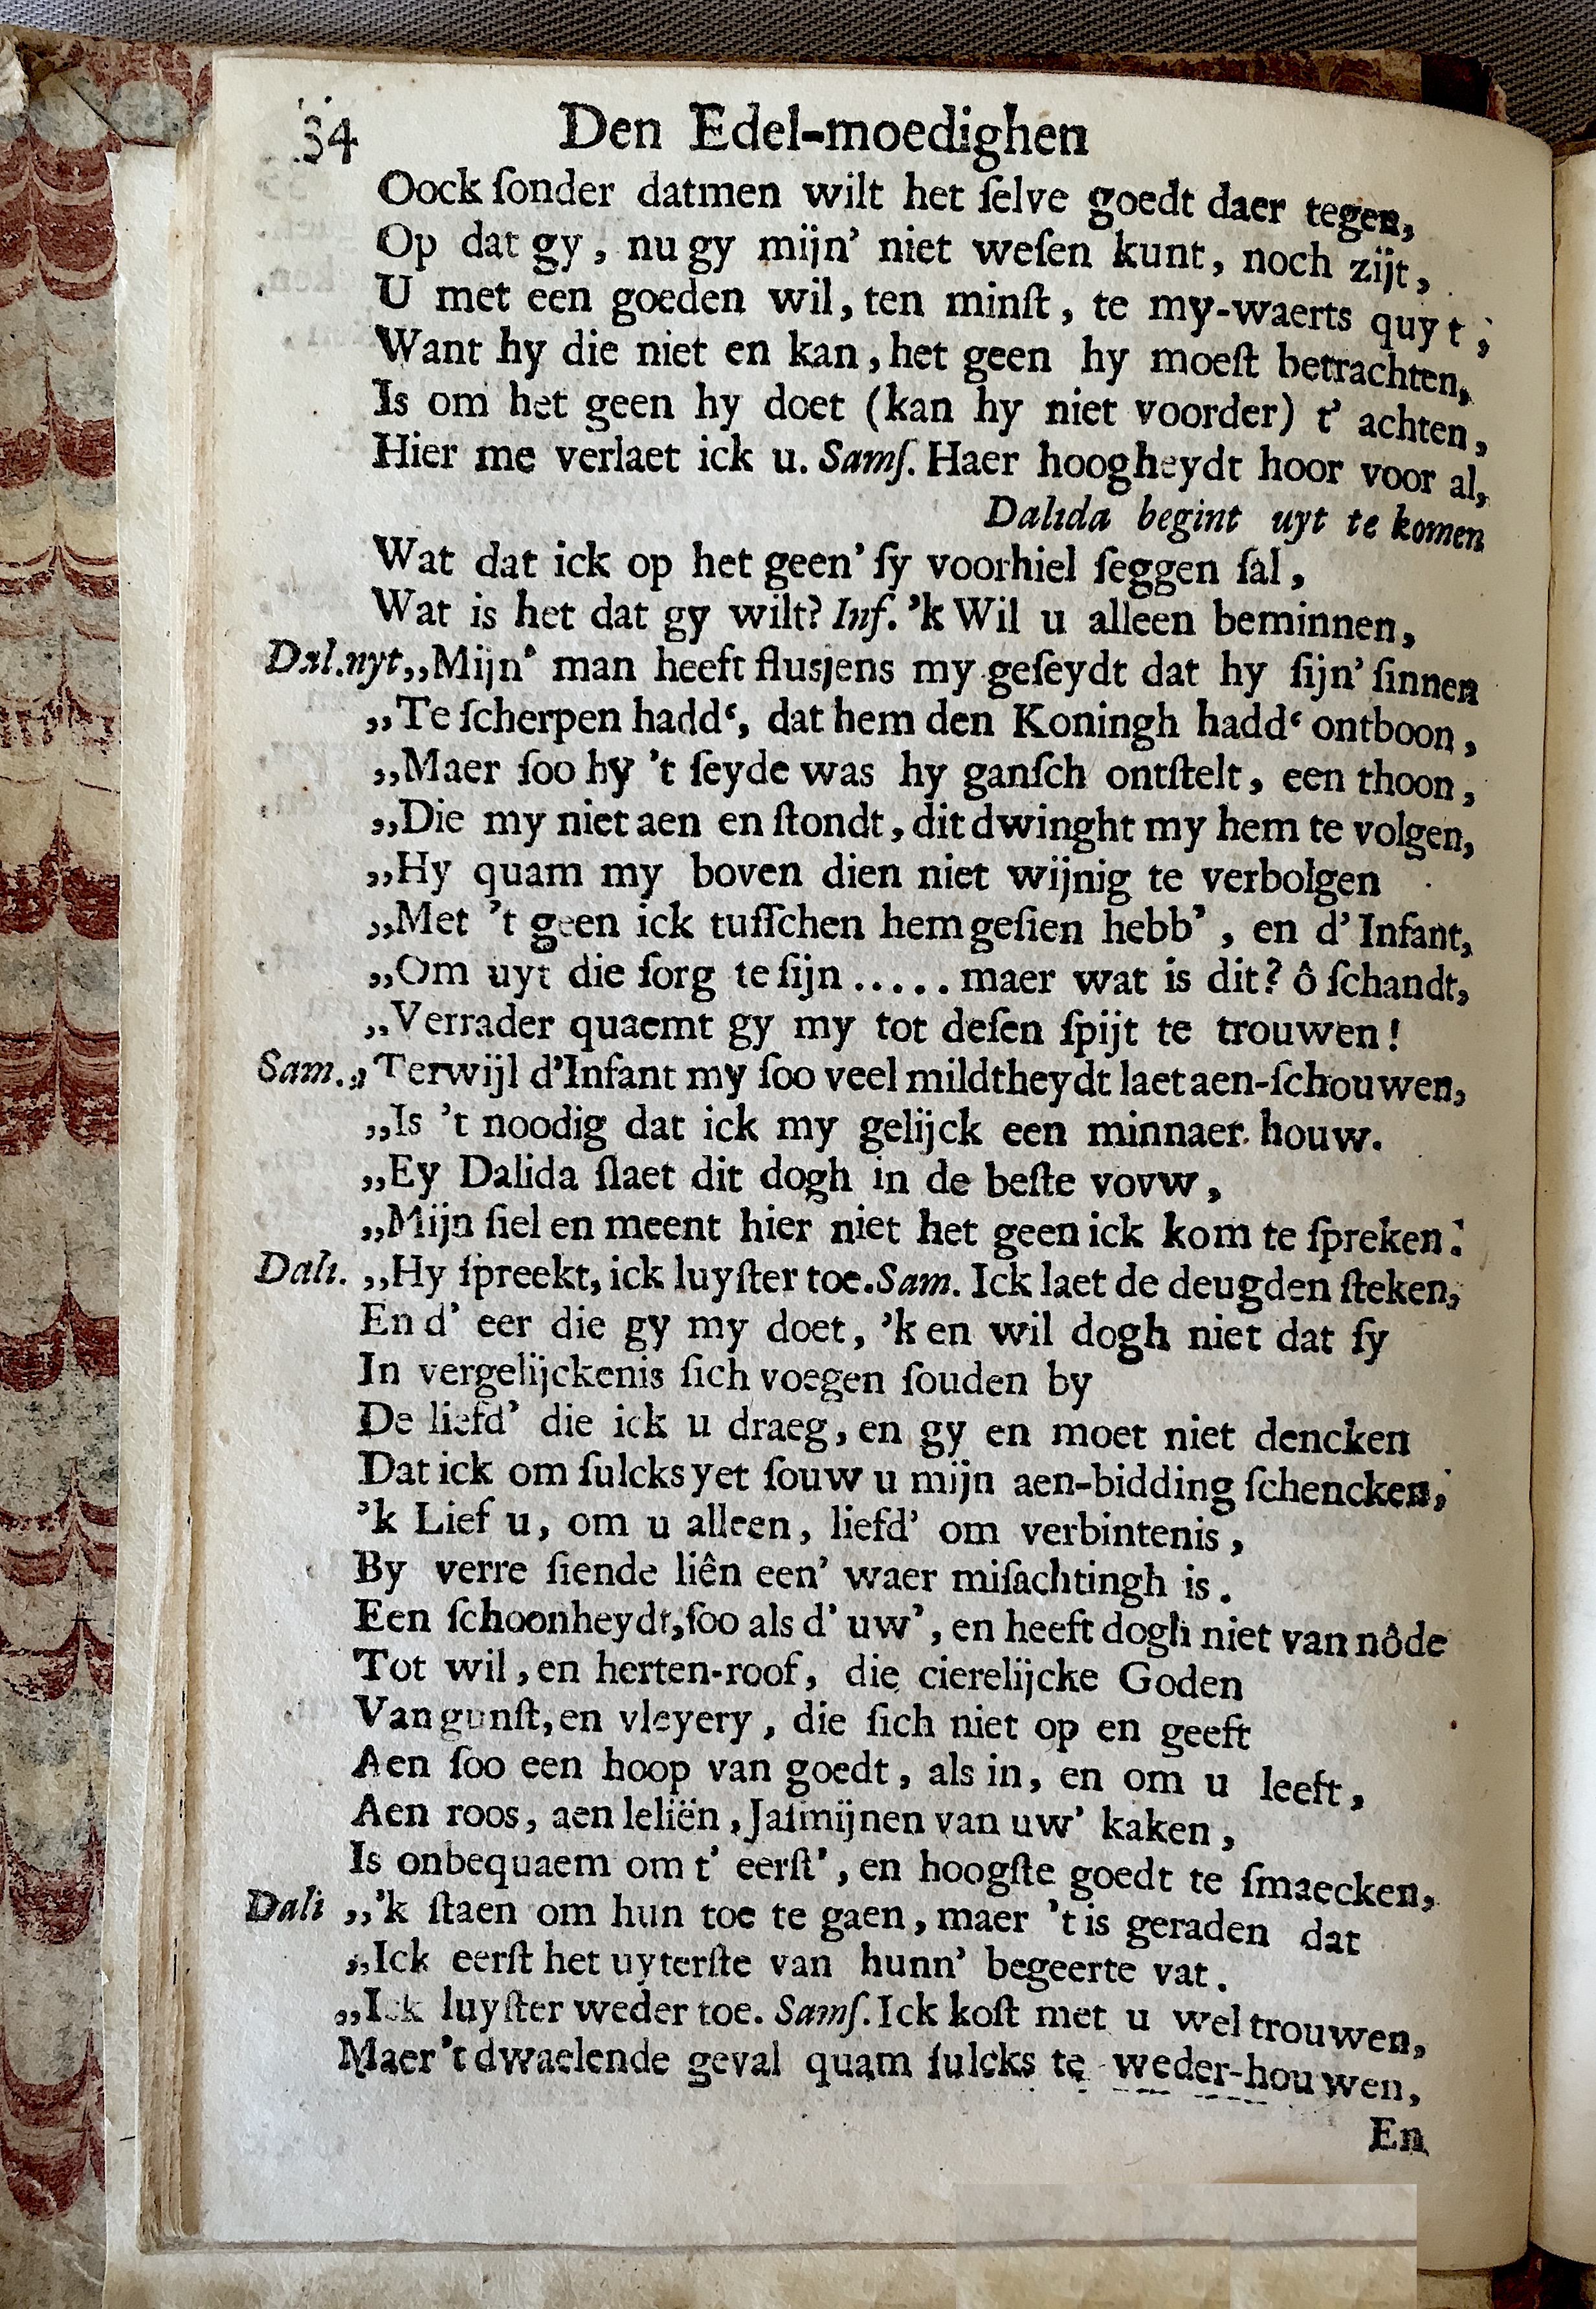 34 Den Edel-moedighen
Oock ſonder datmen wilt het ſelve goedt daer tegen,
Op dat gy, nu gy mijn' niet weſen kunt, noch zijt,
U met een goeden wil, ten minſt, te my-waerts quyt;
Want hy die niet en kan, het geen hy moeſt betrachten,
Is om het geen hy doet (kan hy niet voorder) t' achten,
Hier me verlaet ick u. Samſ. Haer hoogheydt hoor voor al,
Dalida begint uyt te komen
Wat dat ick op het geen' ſy voorhiel ſeggen ſal,
Wat is het dat gy wilt? Inf. 'k Wil u alleen beminnen,
Dal. uyt „Mijn' man heeft flusjens my geſeydt dat hy ſijn' ſinnen
„Te ſcherpen hadd‘, dat hem den Koningh hadd‘ ontboon,
„Maer ſoo hy 't ſeyde was hy ganſch ontſtelt, een thoon,
„Die my niet aen en ſtondt, dit dwinght my hem te volgen,
„Hy quam my boven dien niet wijnig te verbolgen
„Met 't geen ick tuſſchen hem geſien hebb', en d' Infant,
„Om uyt die ſorg te ſijn ..... maer wat is dit? ô ſchandt,
„Verrader quaemt gy my tot deſen ſpijt te trouwen!
Sam. „Terwijl d'Infant my ſoo veel mildtheydt laet aen-ſchouwen,
„Is 't noodig dat ick my gelijck een minnaer houw.
„Ey Dalida ſlaet dit dogh in de beſte vovw,
„Mijn ſiel en meent hier niet het geen ick kom te ſpreken:
Dali. „Hy ſpreekt, ick luyſter toe. Sam. Ick laet de deugden ſteken,
En d' eer die gy my doet, 'k en wil dogh niet dat ſy
In vergelijckenis ſich voegen ſouden by
De liefd' die ick u draeg, en gy en moet niet dencken
Dat ick om ſulcks yet ſouw u mijn aen-bidding ſchencken;
'k Lief u, om u alleen, liefd' om verbintenis,
By verre ſiende liên een' waer miſachtingh is.
Een ſchoonheydt, ſoo als d' uw', en heeft dogh niet van nôde
Tot wil, en herten-roof, die cierelijcke Goden
Van gunſt, en vleyery, die ſich niet op en geeft
Aen ſoo een hoop van goedt, als in, en om u leeft,
Aen roos, aen leliën, Jaſmijnen van uw' kaken,
Is onbequaem om t' eerſt', en hoogſte goedt te ſmaecken,
Dali „'k ſtaen om hun toe te gaen, maer 't is geraden dat
„Ick eerſt het uyterſte van hunn' begeerte vat.
„Ick luyſter weder toe. Samſ. Ick koſt met u wel trouwen,
Maer 't dwaelende geval quam ſulcks te weder-houwen,
En